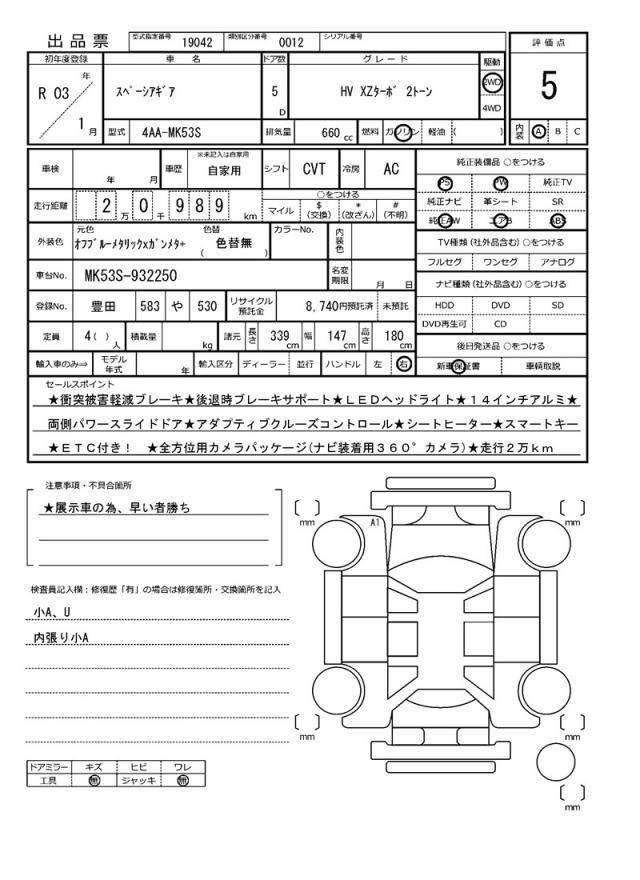 出品票 型式指定番号 19042 類別区分番号 0012 シリアル番号
評価点
5
初年度登録 車名 ドア数 グレード 駆動
R 03 年 1 月 スペーシアギア 5 D HV XZターボ 2トーン 2WD 4WD
型式 4AA-MK53S 排気量 660 cc 燃料 ガソリン 軽油 ( )
内装 A B C
車検 年 月 車歴 ※未記入は自家用 自家用 シフト CVT 冷房 AC
走行距離 2 万 0 千 9 8 9 km ○をつける
マイル $ (交換) * (改ざん) # (不明)
外装色 元色 オフブルーメタリックxガンメタ+ 色替 色替無 ( ) カラーNo. 内装色
車台No. MK53S-932250 名変期限 月 日
登録No. 豊田 583 や 530 リサイクル預託金 8,740円預託済 未預託
定員 4( ) 人 積載量 kg 諸元 長さ 339 cm 幅 147 cm 高さ 180 cm
輸入車のみ⇒ モデル年式 年 輸入区分 ディーラー 並行 ハンドル 左 右
純正装備品 ○をつける
PS PW 純正TV
純正ナビ 革シート SR
純正AW エアB ABS
TV種類(社外品含む)○をつける
フルセグ ワンセグ アナログ
ナビ種類(社外品含む)○をつける
HDD DVD SD
DVD再生可 CD
後日発送品 ○をつける
新車保証書 車輌取説
セールスポイント
★衝突被害軽減ブレーキ★後退時ブレーキサポート★LEDヘッドライト★14インチアルミ★
両側パワースライドドア★アダプティブクルーズコントロール★シートヒーター★スマートキー
★ETC付き! ★全方位用カメラパッケージ(ナビ装着用360°カメラ)★走行2万km
注意事項・不具合箇所
★展示車の為、早い者勝ち
検査員記入欄:修復歴「有」の場合は修復箇所・交換箇所を記入
小A、U
内張り小A
ドアミラー キズ ヒビ ワレ
工具 無 ジャッキ 無
A1
mm
mm
mm
mm
mm